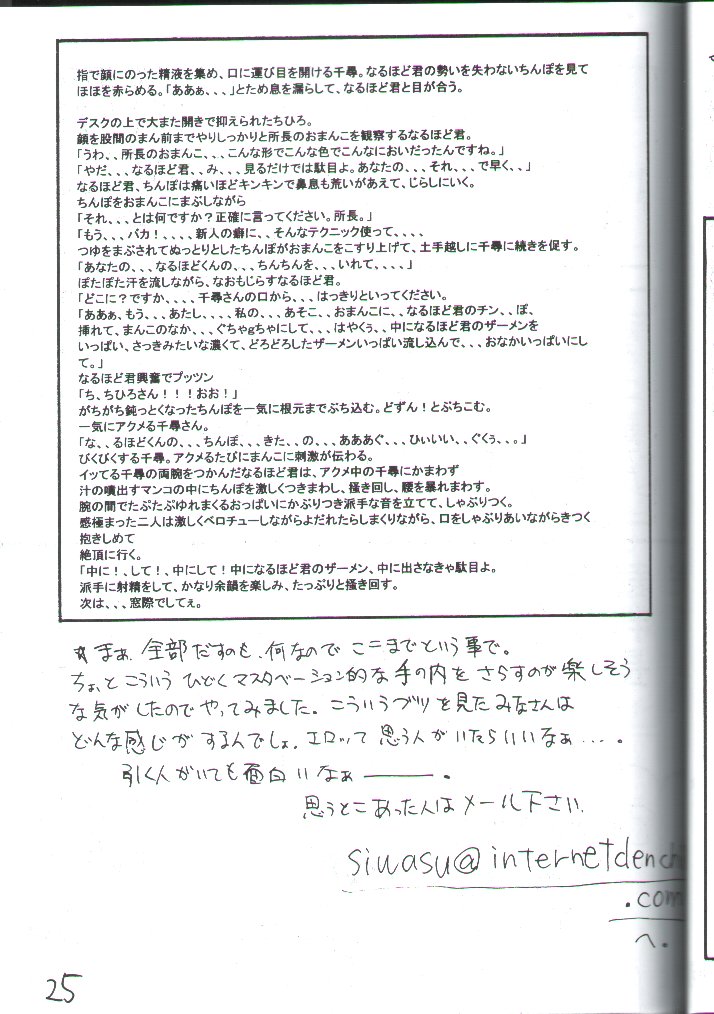 指で顔にのった精液を集め、口に運び目を開ける千尋。なるほど君の勢いを失わないちんぽを見て
ほほを赤らめる。「ああぁ、、、」とため息を漏らして、なるほど君と目が合う。
デスクの上で大また開きで抑えられたちひろ。
顔を股間のまん前までやりしっかりと所長のおまんこを観察するなるほど君。
「うわ、、所長のおまんこ、、、こんな形でこんな色でこんなにおいだったんですね。」
「やだ、、、なるほど君、、み、、、見るだけでは駄目よ。あなたの、、、それ、、、で早く、、」
なるほど君、ちんぽは痛いほどキンキンで鼻息も荒いがあえて、じらしにいく。
ちんぽをおまんこにまぶしながら
「それ、、、とは何ですか？正確に言ってください。所長。」
「もう、、、バカ！、、、、新人の癖に、、そんなテクニック使って、、、、
つゆをまぶされてぬっとりとしたちんぽがおまんこをこすり上げて、土手越しに千尋に続きを促す。
「あなたの、、、なるほどくんの、、、ちんちんを、、、いれて、、、、」
ぽたぽた汗を流しながら、なおもじらすなるほど君。
「どこに？ですか、、、、千尋さんの口から、、、はっきりといってください。
「ああぁ、もう、、、あたし、、、、私の、、、あそこ、、おまんこに、、なるほど君のチン、、ぽ、
挿れて、まんこのなか、、、ぐちゃgちゃにして、、、はやくぅ、、中になるほど君のザーメンを
いっぱい、さっきみたいな濃くて、どろどろしたザーメンいっぱい流し込んで、、、おなかいっぱいにし
て。」
なるほど君興奮でプッツン
「ち、ちひろさん！！！おお！」
がちがち鈍っとくなったちんぽを一気に根元までぶち込む。どずん！とぶちこむ。
一気にアクメる千尋さん。
「な、、るほどくんの、、、ちんぽ、、、きた、、の、、、あああぐ、、、ひぃいい、、ぐくぅ、、。」
びくびくする千尋。アクメるたびにまんこに刺激が伝わる。
イッてる千尋の両腕をつかんだなるほど君は、アクメ中の千尋にかまわず
汁の噴出すマンコの中にちんぽを激しくつきまわし、掻き回し、腰を暴れまわす。
腕の間でたぷたぷゆれまくるおっぱいにかぶりつき派手な音を立てて、しゃぶりつく。
感極まった二人は激しくベロチューしながらよだれたらしまくりながら、口をしゃぶりあいながらきつく
抱きしめて
絶頂に行く。
「中に！、して！、中にして！中になるほど君のザーメン、中に出さなきゃ駄目よ。
派手に射精をして、かなり余韻を楽しみ、たっぷりと掻き回す。
次は、、、窓際でしてぇ。
☆まぁ、全部だすのも、何なので ここまでという事で。
ちょいと こういう ひどくマスタベーション的な手の内を さらすのが 楽しそう
な気がしたので やってみました。こういうブツ を見た みなさんは
どんな感じがするんでしょ。エロッて 思う人が いたら いいなぁ…。
引く人がいても面白いなぁ――――。
思うとこあった人はメール下さい。
siwasu@internetdench
.com
へ。
25